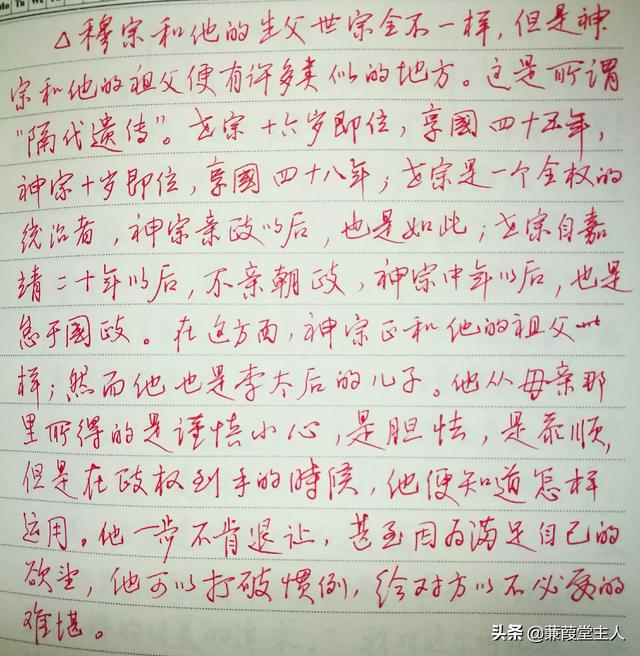 Mo Tu We Th
△穆宗和他的生父世宗全不一样，但是神
宗和他的祖父便有许多类似的地方。这是所谓
“隔代遗传”。世宗十六岁即位，享國四十五年，
神宗十岁即位，享國四十八年；世宗是一个全权的
统治者，神宗亲政以后，也是如此；世宗自嘉
靖二十年以后，不亲朝政，神宗中年以后，也是
怠于國政。在这方面，神宗正和他的祖父一
样；然而他也是李太后的儿子。他从母亲那
里所得的是谨慎小心，是胆怯，是恭顺，
但是在政权到手的時候，他便知道怎样
运用。他一步不肯退让，甚至因为满足自己的
欲望，他可以打破慣例，给对方以不必要的
难堪。
头条 @蒹葭堂主人